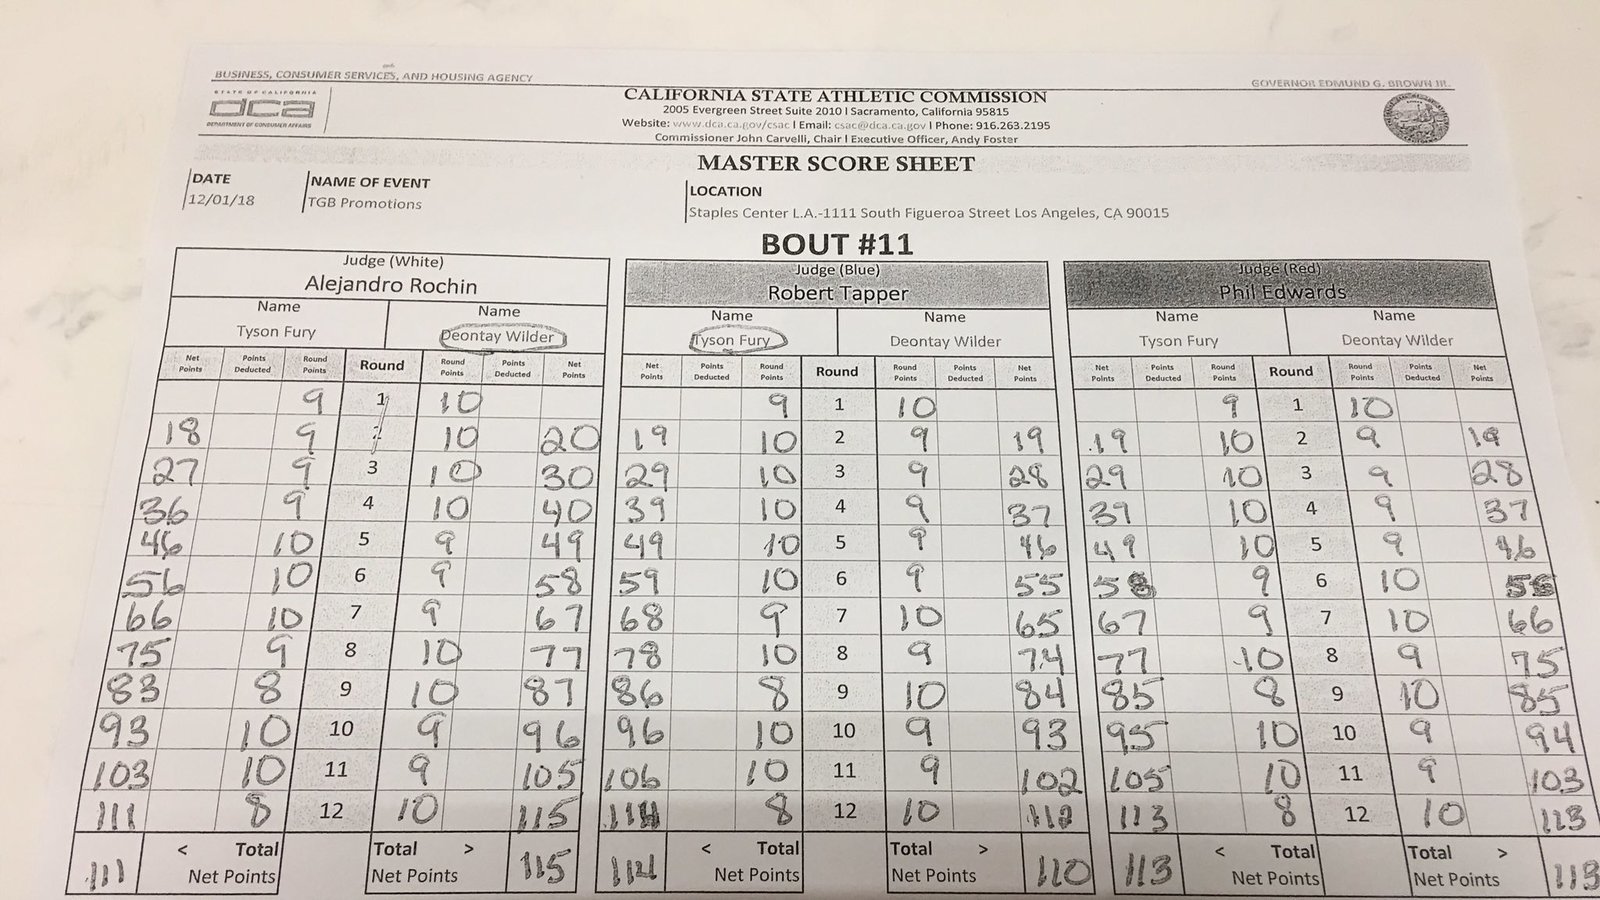 BUSINESS, CONSUMER SERVICES, AND HOUSING AGENCY
GOVERNOR EDMUND G. BROWN JR.
STATE OF CALIFORNIA
dca
DEPARTMENT OF CONSUMER AFFAIRS
CALIFORNIA STATE ATHLETIC COMMISSION
2005 Evergreen Street Suite 2010 l Sacramento, California 95815
Website: www.dca.ca.gov/csac l Email: csac@dca.ca.gov l Phone: 916.263.2195
Commissioner John Carvelli, Chair l Executive Officer, Andy Foster
MASTER SCORE SHEET
DATE NAME OF EVENT LOCATION
12/01/18 TGB Promotions Staples Center L.A.-1111 South Figueroa Street Los Angeles, CA 90015
BOUT #11
Judge (White) Judge (Blue) Judge (Red)
Alejandro Rochin Robert Tapper Phil Edwards
Name Name Name Name Name Name
Tyson Fury Deontay Wilder Tyson Fury Deontay Wilder Tyson Fury Deontay Wilder
Net Points Points Deducted Round Points Round Round Points Points Deducted Net Points Net Points Points Deducted Round Points Round Round Points Points Deducted Net Points Net Points Points Deducted Round Points Round Round Points Points Deducted Net Points
9 1 10 9 1 10 9 1 10
18 9 2 10 20 19 10 2 9 19 19 10 2 9 19
27 9 3 10 30 29 10 3 9 28 29 10 3 9 28
36 9 4 10 40 39 10 4 9 37 39 10 4 9 37
46 10 5 9 49 49 10 5 9 46 49 10 5 9 46
56 10 6 9 58 59 10 6 9 55 58 9 6 10 56
66 10 7 9 67 68 9 7 10 65 67 9 7 10 66
75 9 8 10 77 78 10 8 9 74 77 10 8 9 75
83 8 9 10 87 86 8 9 10 84 85 8 9 10 85
93 10 10 9 96 96 10 10 9 93 95 10 10 9 94
103 10 11 9 105 106 10 11 9 102 105 10 11 9 103
111 8 12 10 115 114 8 12 10 112 113 8 12 10 113
< Total Total > < Total Total > < Total Total >
111 Net Points Net Points 115 114 Net Points Net Points 110 113 Net Points Net Points 113